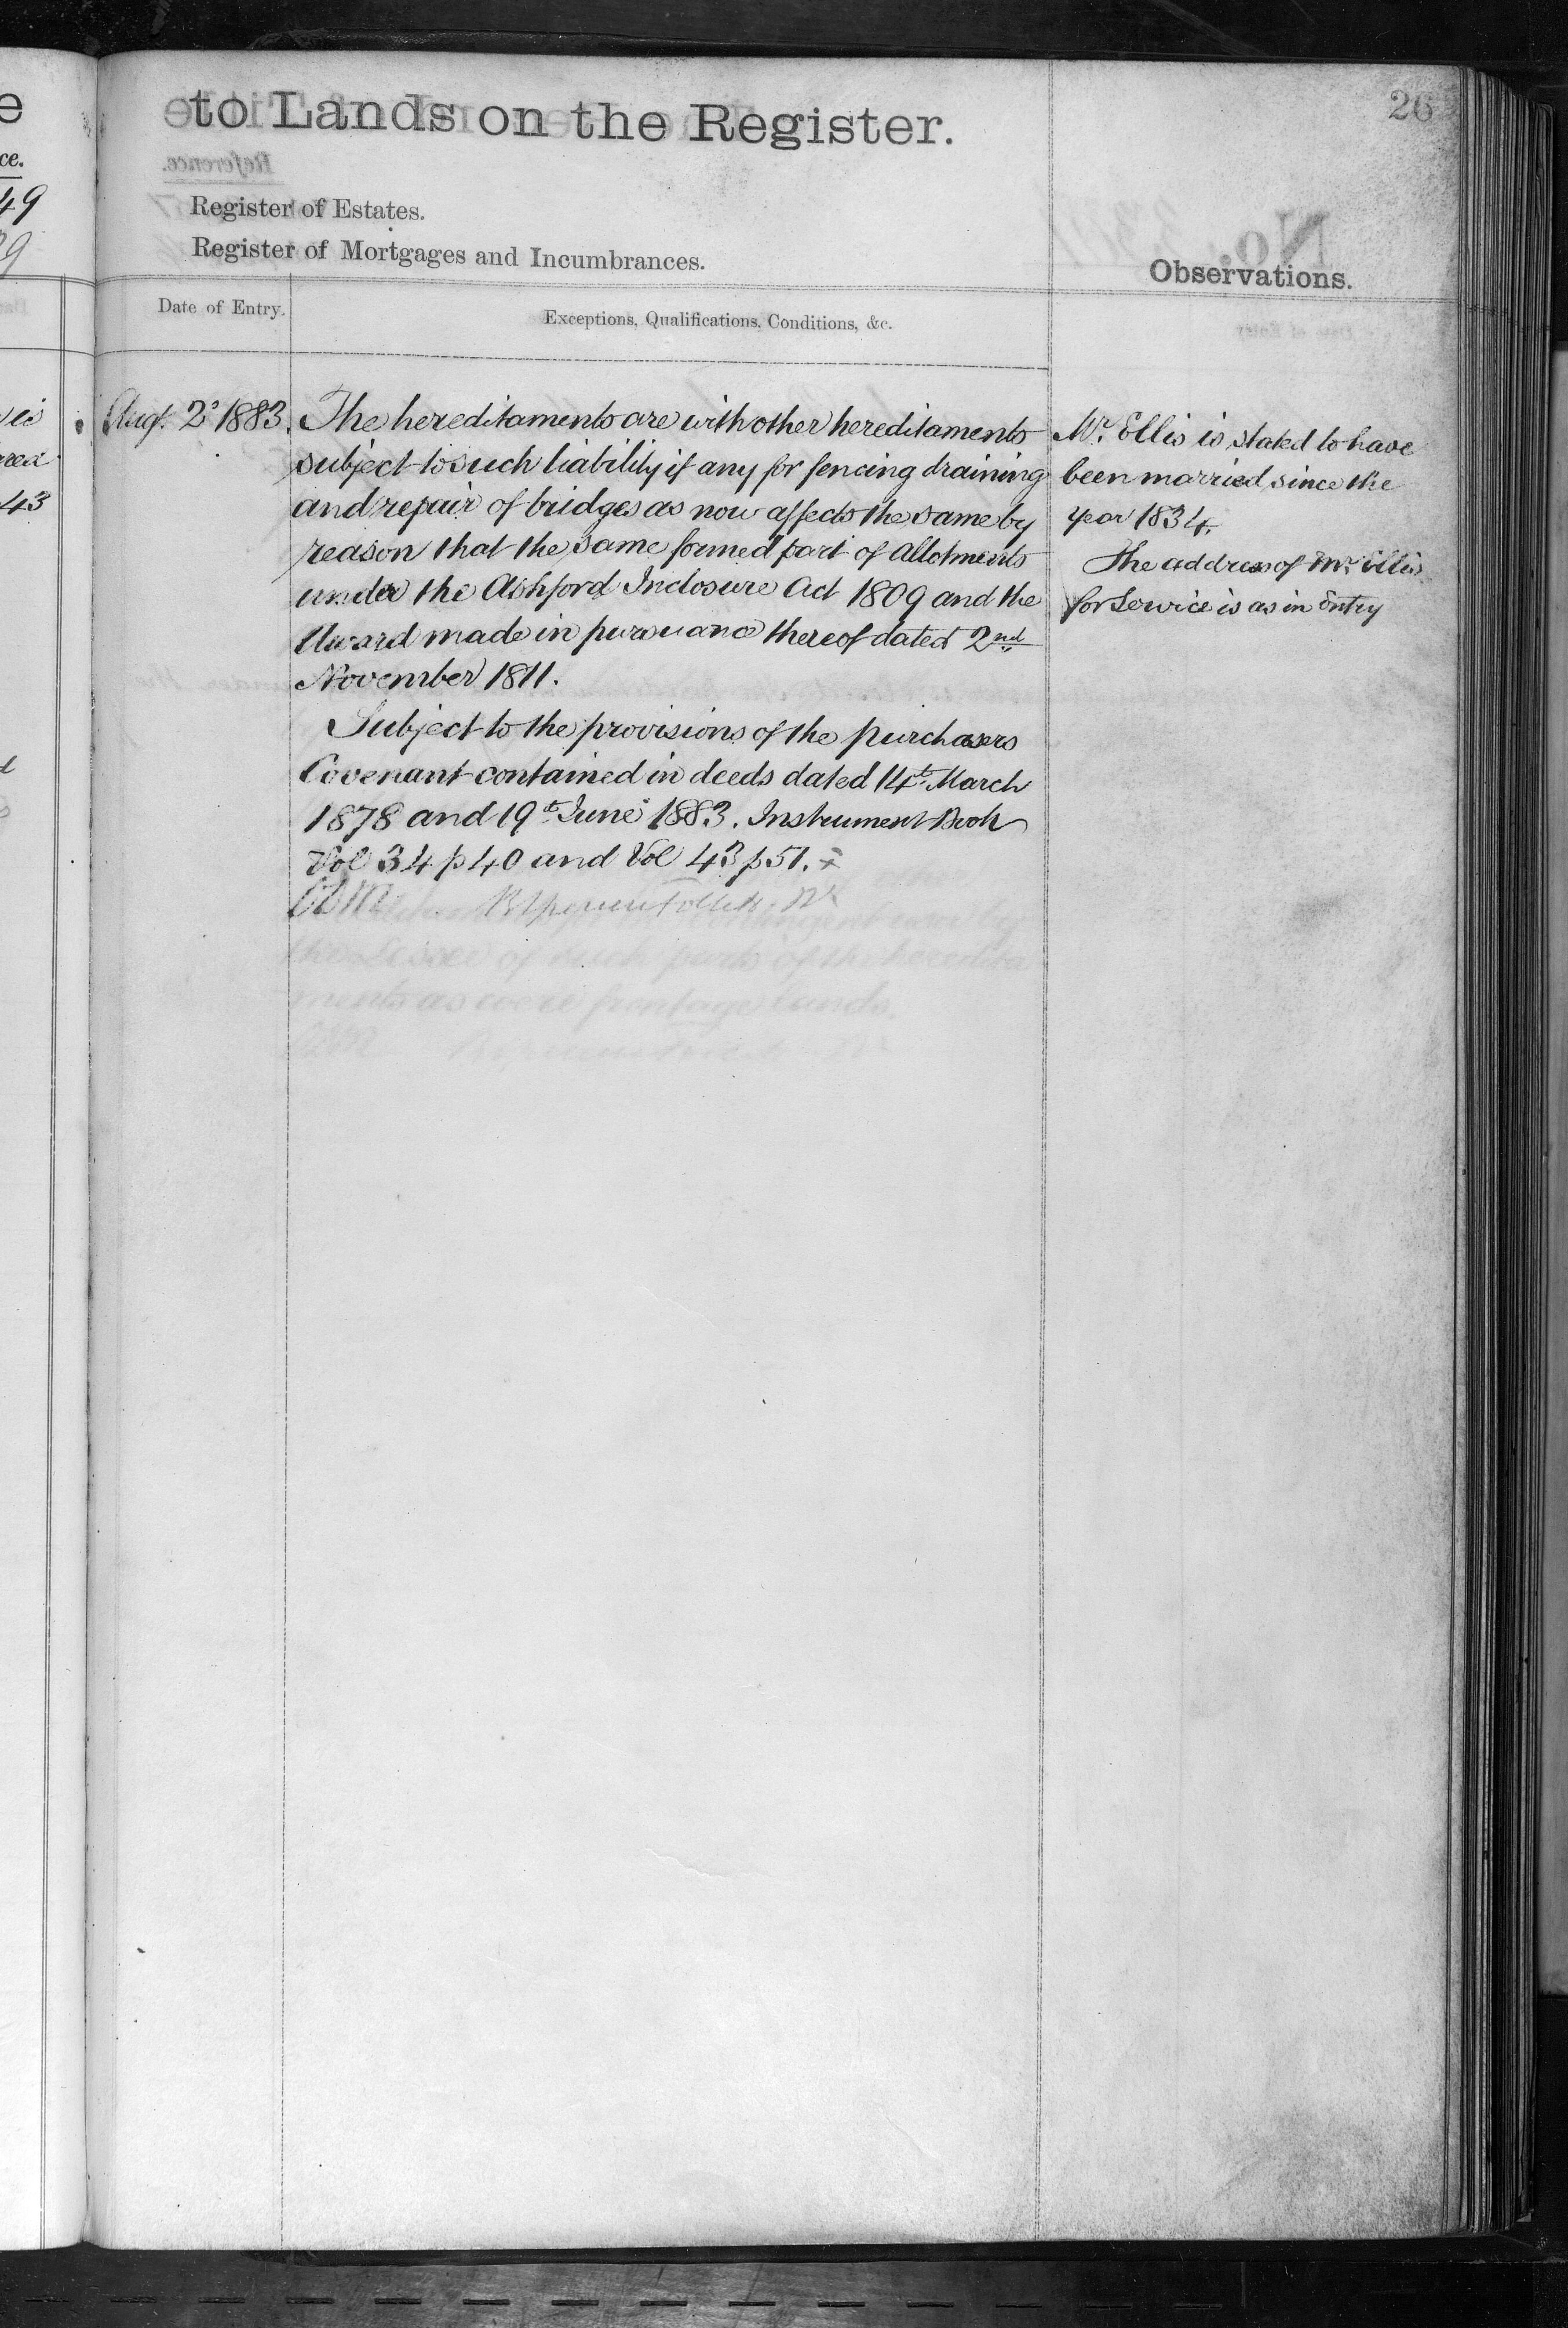 26
to Lands on the Register.
Register of Estates.
Register of Mortgages and Incumbrances.
Date of Entry.
Exceptions, Qualifications, Conditions, &c.
Observations.
Augt. 2d 1883.
The hereditaments are with other hereditaments
subject to such liability if any for fencing draining
and repair of bridges as now affects the same by
reason that the same formed part of Allotments
under the Ashford Inclosure Act 1809 and the
Award made in pursuance thereof dated 2nd
November 1811.
Subject to the provisions of the purchasers
Covenant contained in deeds dated 14th March
1878 and 19th June 1883. Instrument Book
Vol 34 p 40 and Vol 43 p 51.
the Lessee of such parts of the heredita
ments as were frontage lands.
Mr. Ellis is stated to have
been married since the
year 1834.
The address of Mr. Ellis
for Service is as in Entry
e
ce.
49
9
43